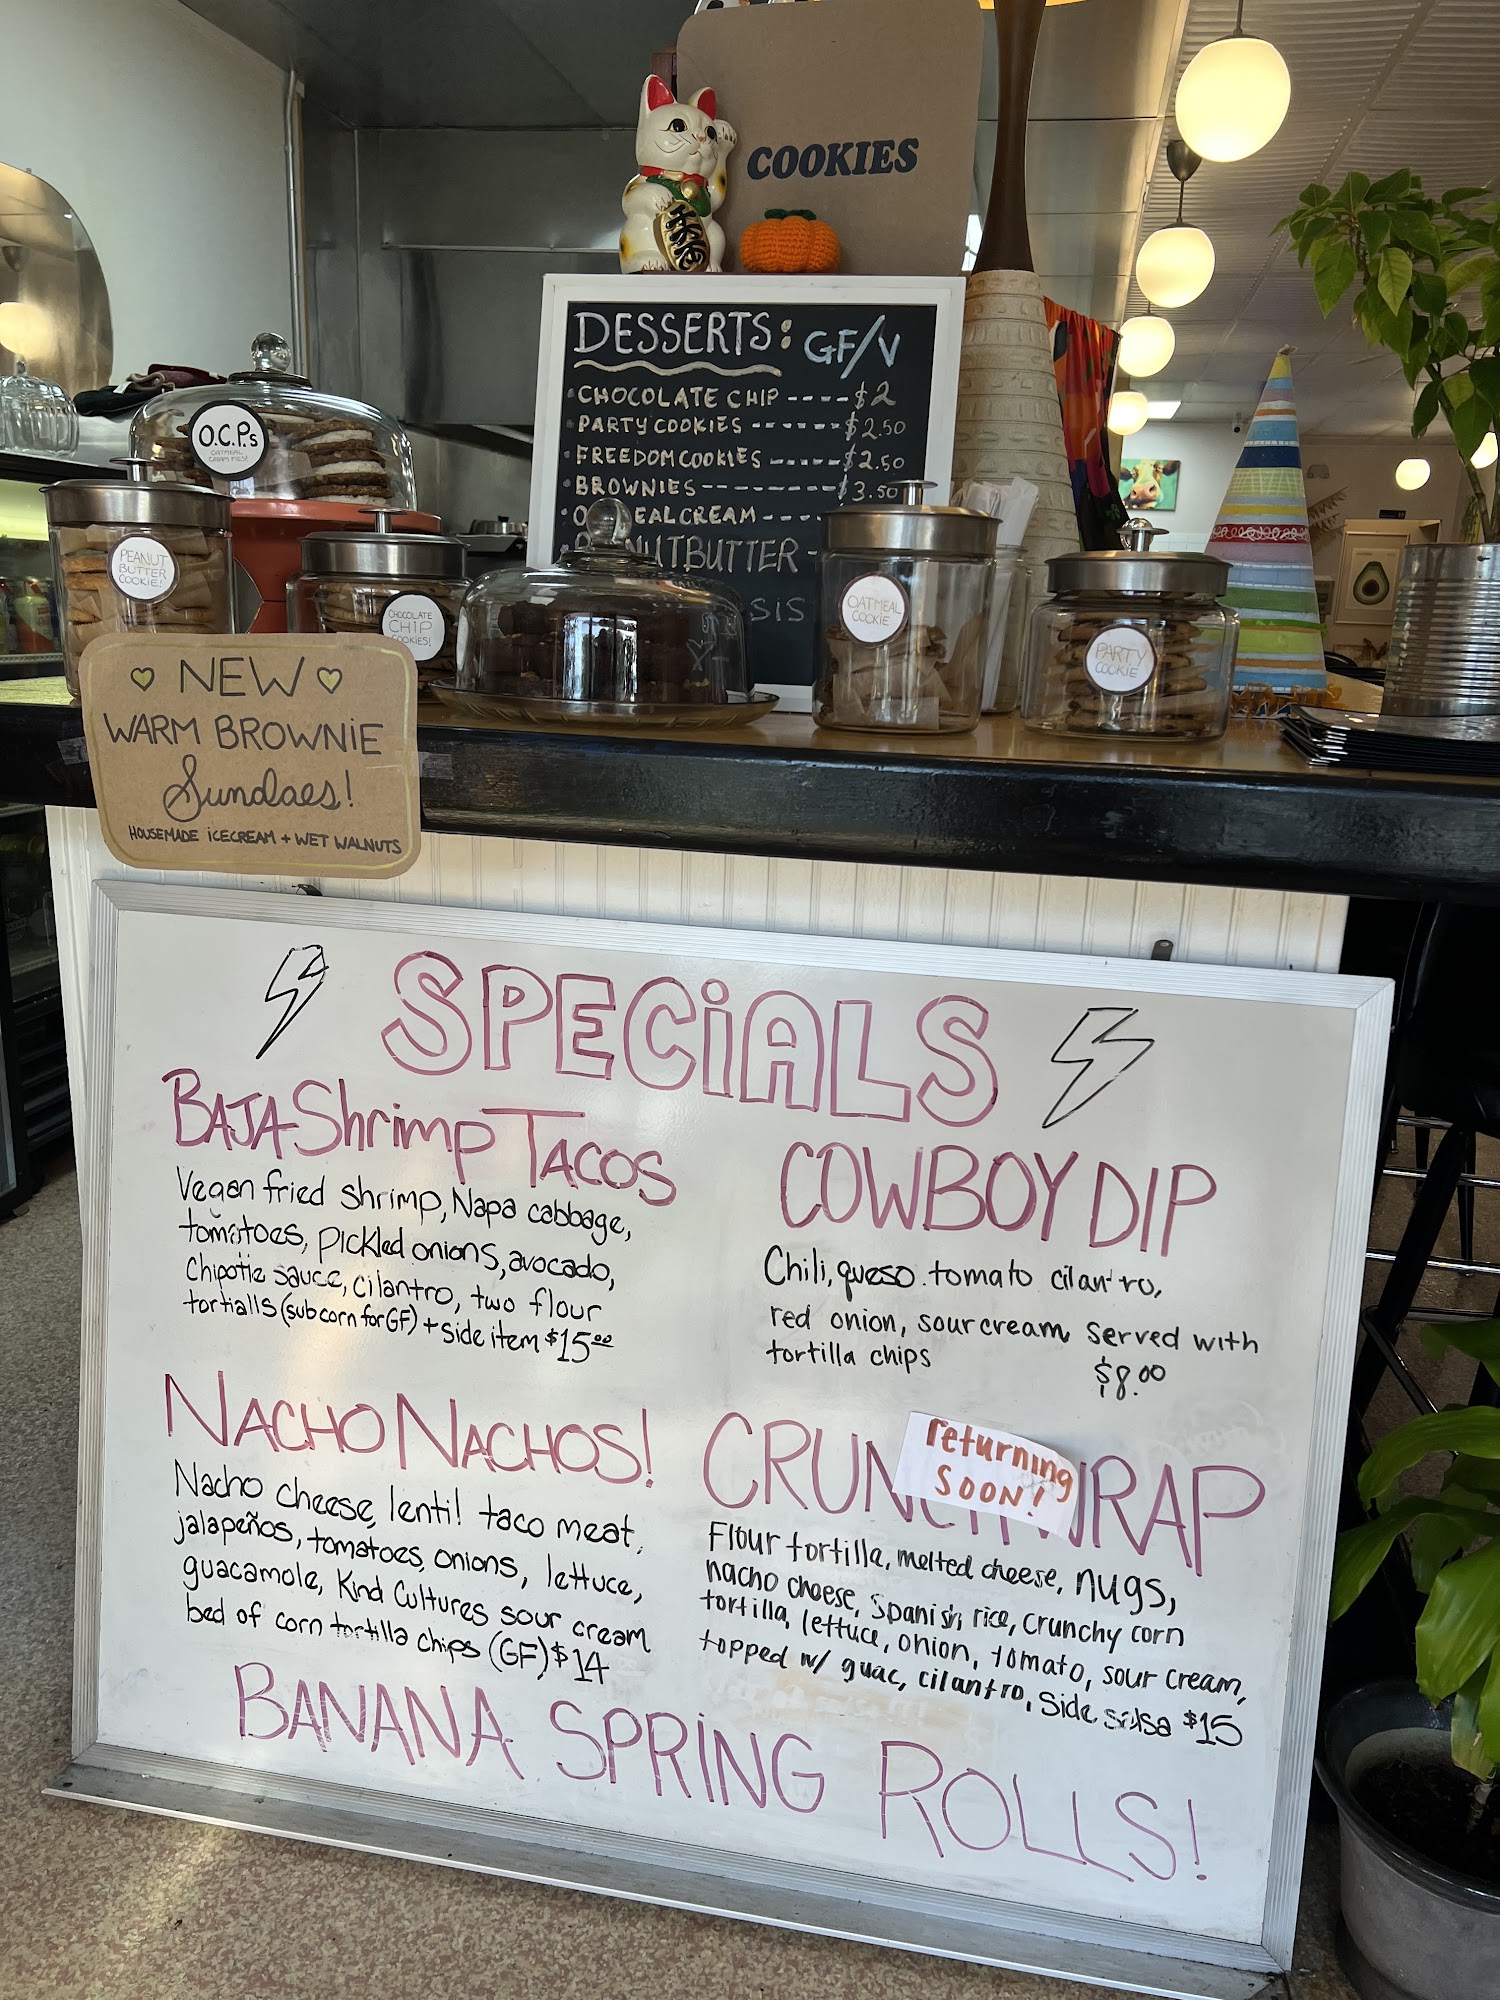 COOKIES
DESSERTS: GF/V
CHOCOLATE CHIP ----$2
PARTY COOKIES ------$2.50
FREEDOM COOKIES -----$2.50
BROWNIES--------- 3.50
EALCREAM ---
NUTBUTTER -
SIS
O.C.P.s
OATMEAL
CREAM PIES!
PEANUT
BUTTER
COOKIE!
CHOCOLATE
CHIP
COOKIES!
OATMEAL
COOKIE
PARTY
COOKIE
NEW
WARM BROWNiE
Sundaes!
HOUSEMADE iCECREAM + WET WALNUTS
SPECiALS
BAJA Shrimp TACOS
Vegan fried shrimp, Napa cabbage,
tomatoes, pickled onions, avocado,
Chipotle sauce, cilantro, two flour
tortialls (sub corn for GF) + side item $15.00
COWBOY DIP
Chili, queso tomato cilantro,
red onion, sour cream served with
tortilla chips
$8.00
NACHO NACHOS!
Nacho cheese, lentil taco meat,
jalapeños, tomatoes, onions, lettuce,
guacamole, Kind Cultures sour cream
bed of corn tortilla chips (GF) $14
CRUNCHWRAP
returning
SOON!
Flour tortilla, melted cheese, nugs,
nacho cheese, Spanish rice, crunchy corn
tortilla, lettuce, onion, tomato, sour cream,
topped w/ guac, cilantro, side salsa $15
BANANA SPRiNG ROLLS!